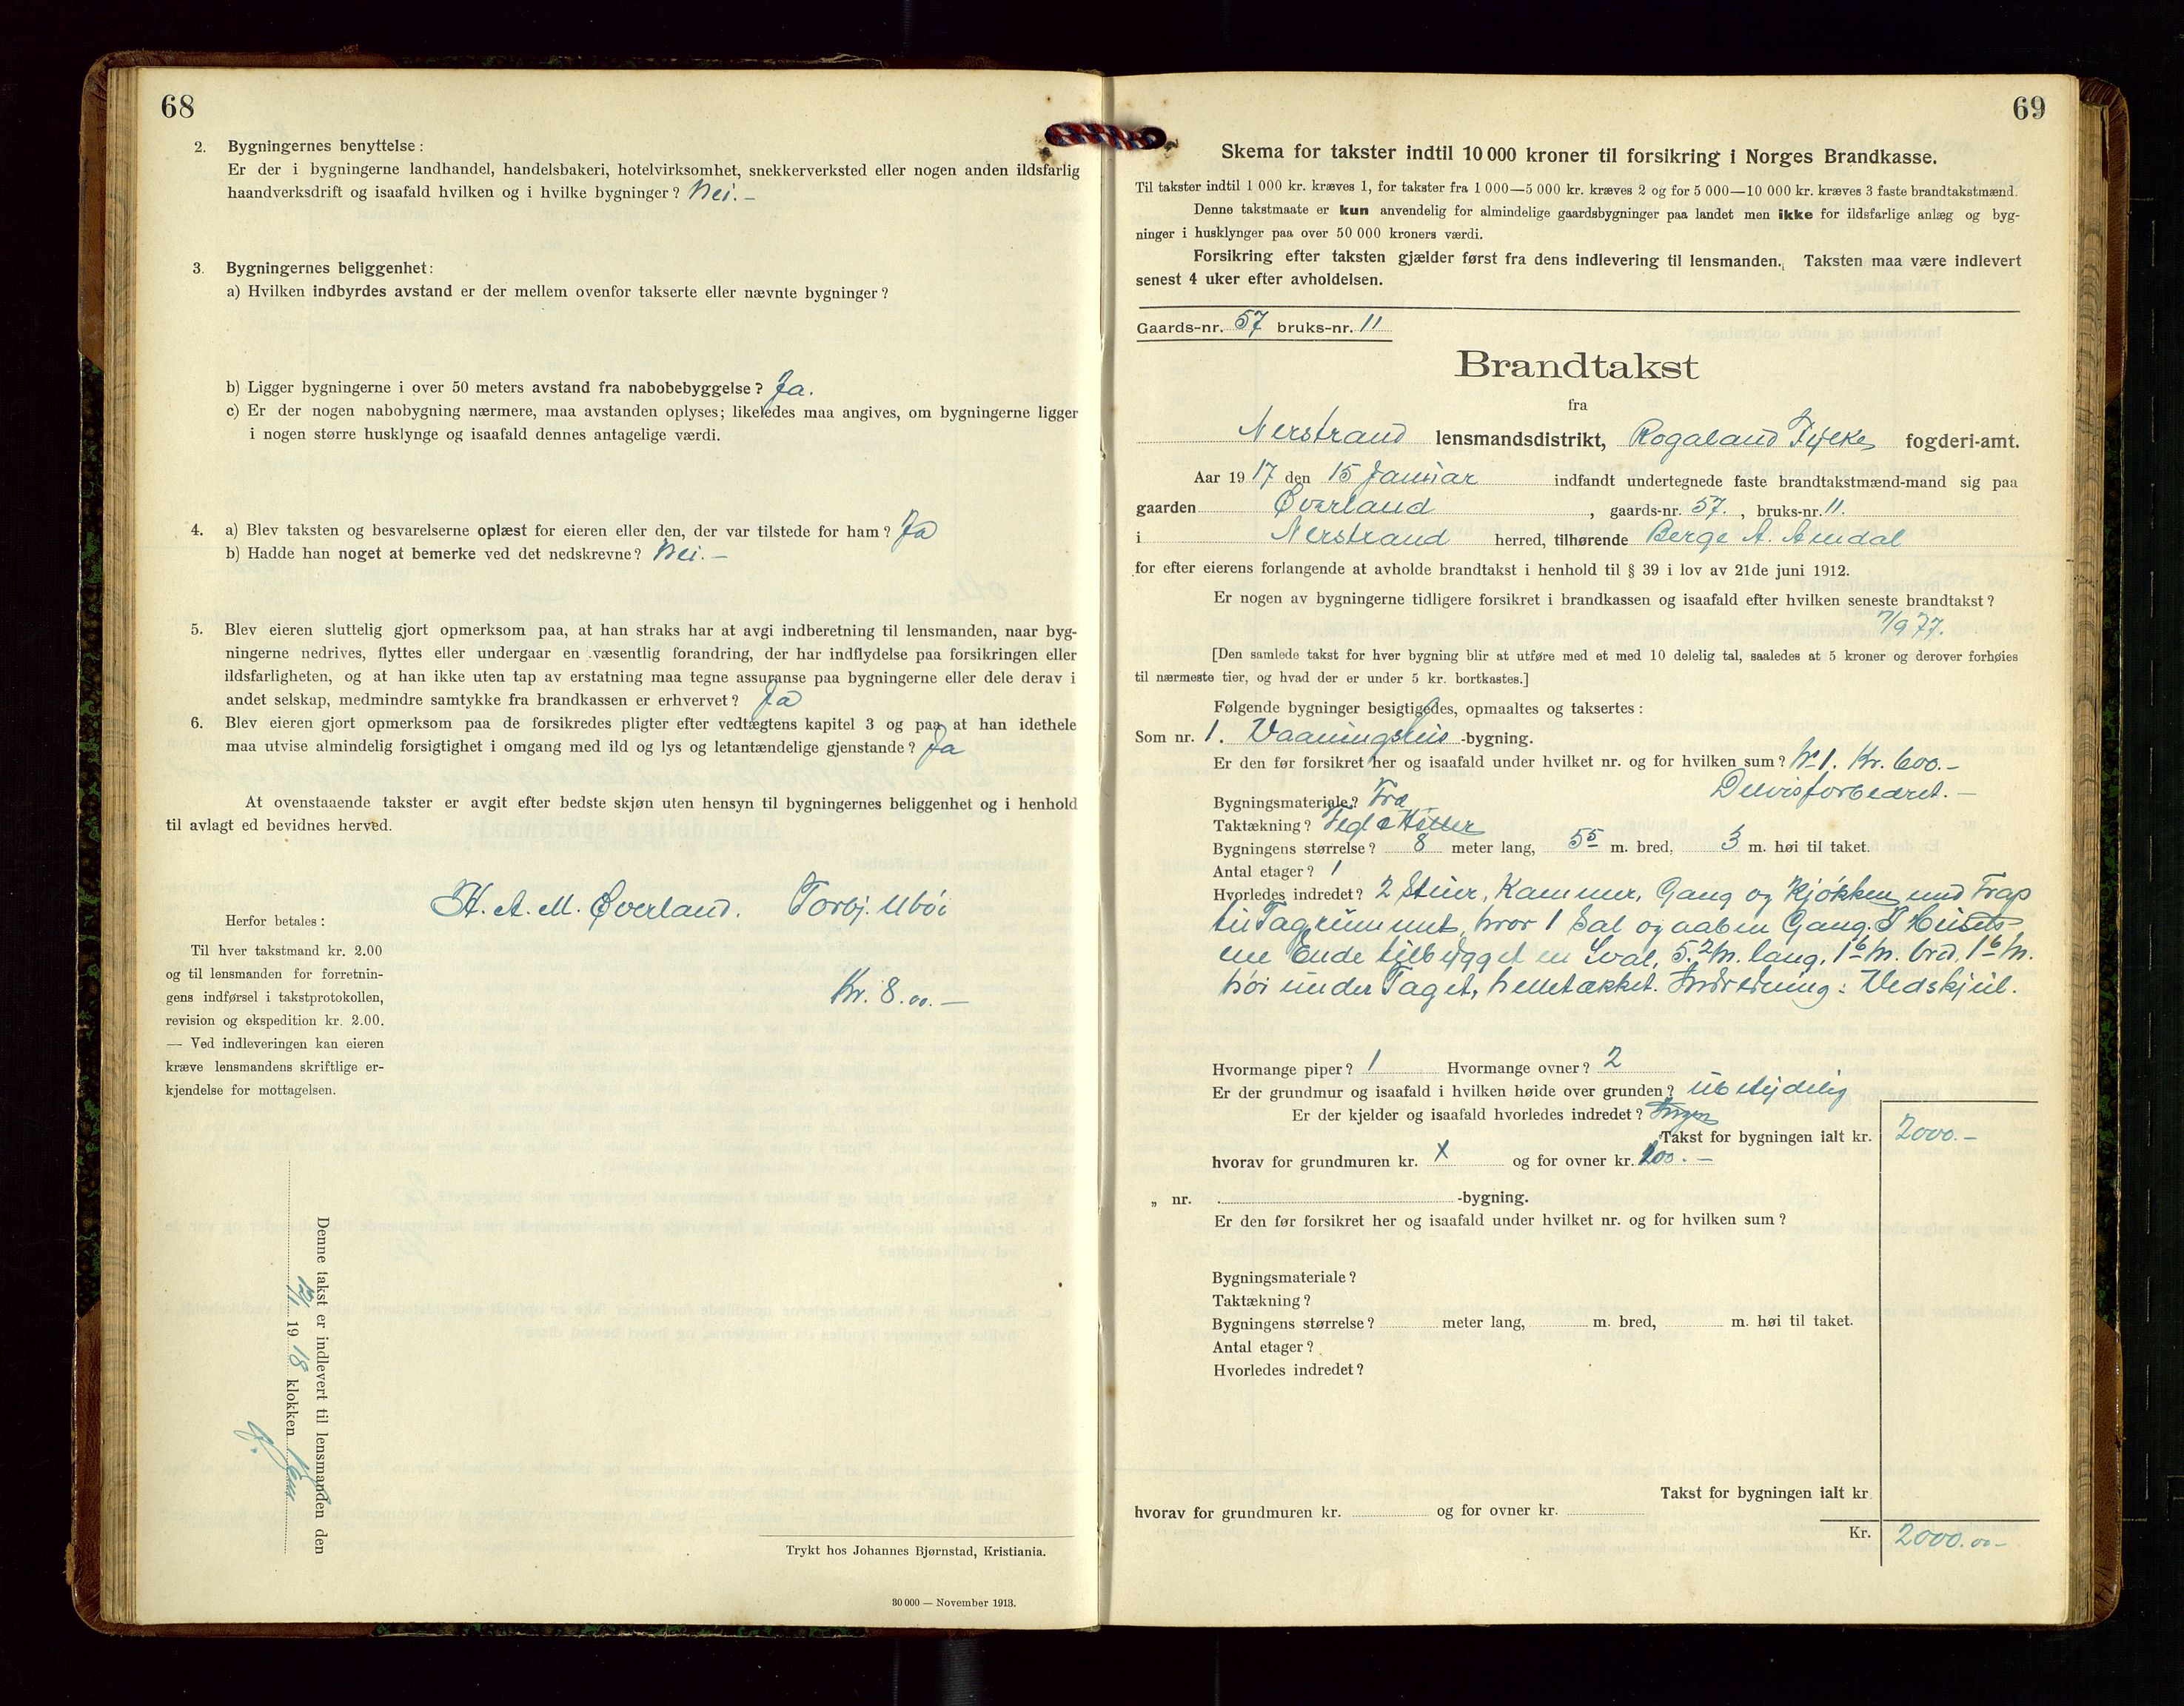 68
2. Bygningernes benyttelse:
Er der i bygningerne landhandel, handelsbakeri, hotelvirksomhet, snekkerverksted eller nogen anden ildsfarlig
haandverksdrift og isaafald hvilken og i hvilke bygninger? Nei. –
3. Bygningernes beliggenhet:
a) Hvilken indbyrdes avstand er der mellem ovenfor takserte eller nævnte bygninger?
b) Ligger bygningerne i over 50 meters avstand fra nabobebyggelse? Ja.
c) Er der nogen nabobygning nærmere, maa avstanden oplyses; likeledes maa angives, om bygningerne ligger
i nogen større husklynge og isaafald dennes antagelige værdi.
4. a) Blev taksten og besvarelserne oplæst for eieren eller den, der var tilstede for ham? Ja
b) Hadde han noget at bemerke ved det nedskrevne? Nei. –
5. Blev eieren sluttelig gjort opmerksom paa, at han straks har at avgi indberetning til lensmanden, naar byg-
ningerne nedrives, flyttes eller undergaar en væsentlig forandring, der har indflydelse paa forsikringen eller
ildsfarligheten, og at han ikke uten tap av erstatning maa tegne assuranse paa bygningerne eller dele derav i
andet selskap, medmindre samtykke fra brandkassen er erhvervet? Ja
6. Blev eieren gjort opmerksom paa de forsikredes pligter efter vedtægtens kapitel 3 og paa at han idethele
maa utvise almindelig forsigtighet i omgang med ild og lys og letantændelige gjenstande? Ja
At ovenstaaende takster er avgit efter bedste skjøn uten hensyn til bygningernes beliggenhet og i henhold
til avlagt ed bevidnes herved.
H. A. M. Øverland. Torbj. Ubøi
Herfor betales:
Til hver takstmand kr. 2.00
og til lensmanden for forretnin-
gens indførsel i takstprotokollen,
revision og ekspedition kr. 2.00.
— Ved indleveringen kan eieren
kræve lensmandens skriftlige er-
kjendelse for mottagelsen.
Kr. 8.00. –
Denne takst er indlevert til lensmanden den
12/1 1918 klokken
Trykt hos Johannes Bjørnstad, Kristiania.
30 000 — November 1913.
69
Skema for takster indtil 10 000 kroner til forsikring i Norges Brandkasse.
Til takster indtil 1 000 kr. kræves 1, for takster fra 1 000—5 000 kr. kræves 2 og for 5 000—10 000 kr. kræves 3 faste brandtakstmænd.
Denne takstmaate er kun anvendelig for almindelige gaardsbygninger paa landet men ikke for ildsfarlige anlæg og byg-
ninger i husklynger paa over 50 000 kroners værdi.
Forsikring efter taksten gjælder først fra dens indlevering til lensmanden. Taksten maa være indlevert
senest 4 uker efter avholdelsen.
Gaards-nr. 57 bruks-nr. 11
Brandtakst
fra
Nerstrand lensmandsdistrikt, Rogaland Fylkes fogderi-amt.
Aar 1917 den 15 Januar indfandt undertegnede faste brandtakstmænd-mand sig paa
gaarden Øverland, gaards-nr. 57., bruks-nr. 11.
i Nerstrand herred, tilhørende Berge A. Amdal
for efter eierens forlangende at avholde brandtakst i henhold til § 39 i lov av 21de juni 1912.
Er nogen av bygningerne tidligere forsikret i brandkassen og isaafald efter hvilken seneste brandtakst?
7/9 77.
[Den samlede takst for hver bygning blir at utføre med et med 10 delelig tal, saaledes at 5 kroner og derover forhøies
til nærmeste tier, og hvad der er under 5 kr. bortkastes.]
Følgende bygninger besigtigedes, opmaaltes og taksertes:
Som nr. 1. Vaaningshus -bygning.
Er den før forsikret her og isaafald under hvilket nr. og for hvilken sum? No 1. Kr. 600. –
Delvis forbedret. –
Bygningsmateriale? Træ
Taktækning? Tegl & Heller
Bygningens størrelse? 8 meter lang, 5⁵ m. bred, 3 m. høi til taket.
Antal etager? 1
Hvorledes indredet? 2 Stuer, Kammer, Gang og Kjøkken med Trap
til Tagrummet, hvor 1 Sal og aaben Gang. I Husets
ene Ende tilbygget en Sval, 5.² M. lang, 1⁶ M. bred, 1⁶ M.
høi under Taget, helletækket. Indredning: Vedskjul.
Hvormange piper? 1 Hvormange ovner? 2
Er der grundmur og isaafald i hvilken høide over grunden? ubetydelig
Er der kjelder og isaafald hvorledes indredet? Ingen
Takst for bygningen ialt kr. 2000. –
hvorav for grundmuren kr. X og for ovner kr. 100. –
„ nr. -bygning.
Er den før forsikret her og isaafald under hvilket nr. og for hvilken sum?
Bygningsmateriale?
Taktækning?
Bygningens størrelse? meter lang, m. bred, m. høi til taket.
Antal etager?
Hvorledes indredet?
Takst for bygningen ialt kr.
hvorav for grundmuren kr. og for ovner kr.
Kr. 2000.00 –